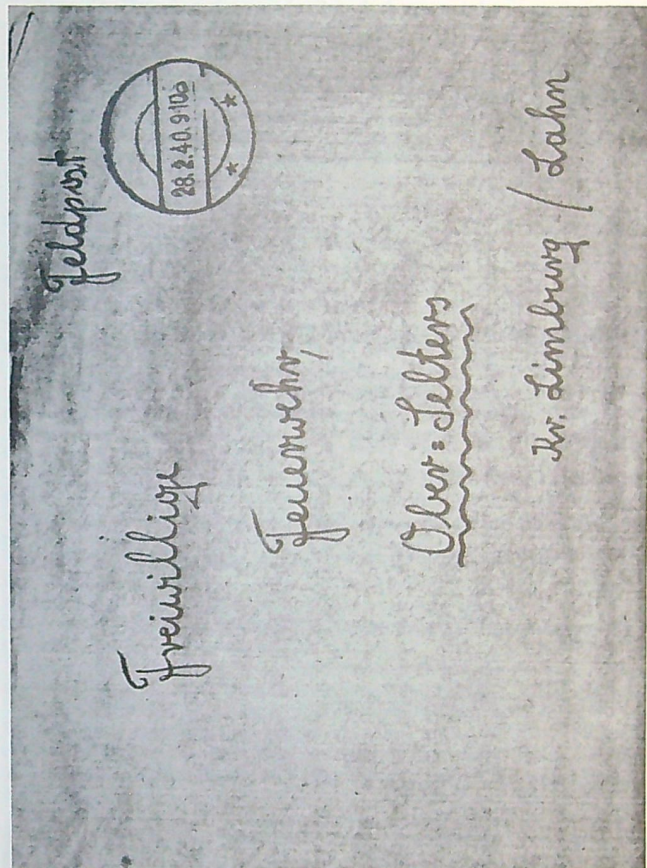 Feldpost
28.2.40.9-10
Freiwillige
Feuerwehr,
Ober=Selters
Kr. Limburg / Lahn